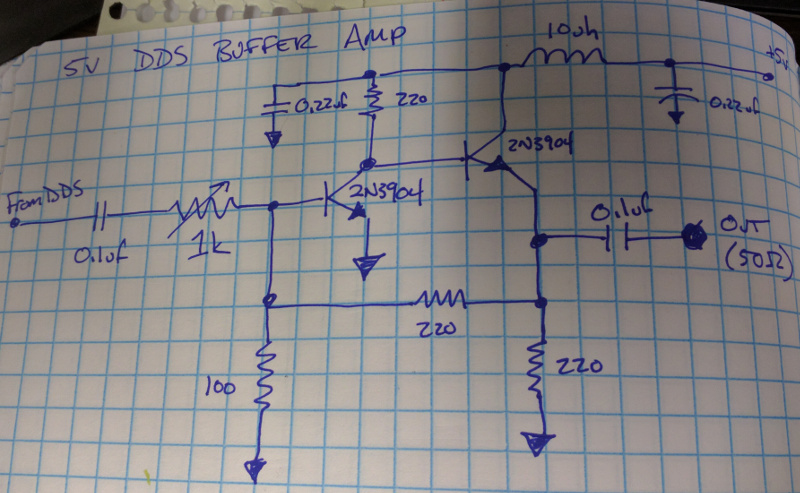 5V DDS BUFFER AMP
10uh
+5v
0.22uf
220
0.22uf
2N3904
From DDS
2N3904
0.1uf
1k
0.1uf
OUT
(50Ω)
220
100
220